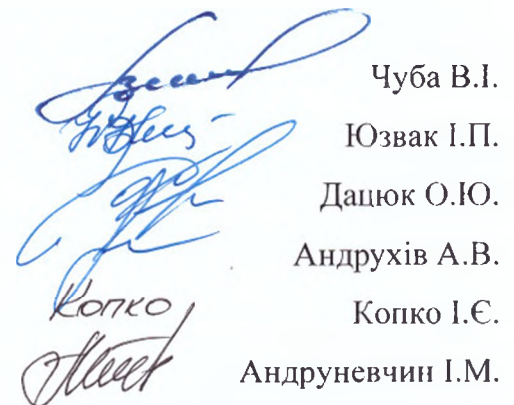 Чуба В.І.
Юзвак І.П.
Дацюк О.Ю.
Андрухів А.В.
Копко Копко І.Є.
Андруневчин І.М.